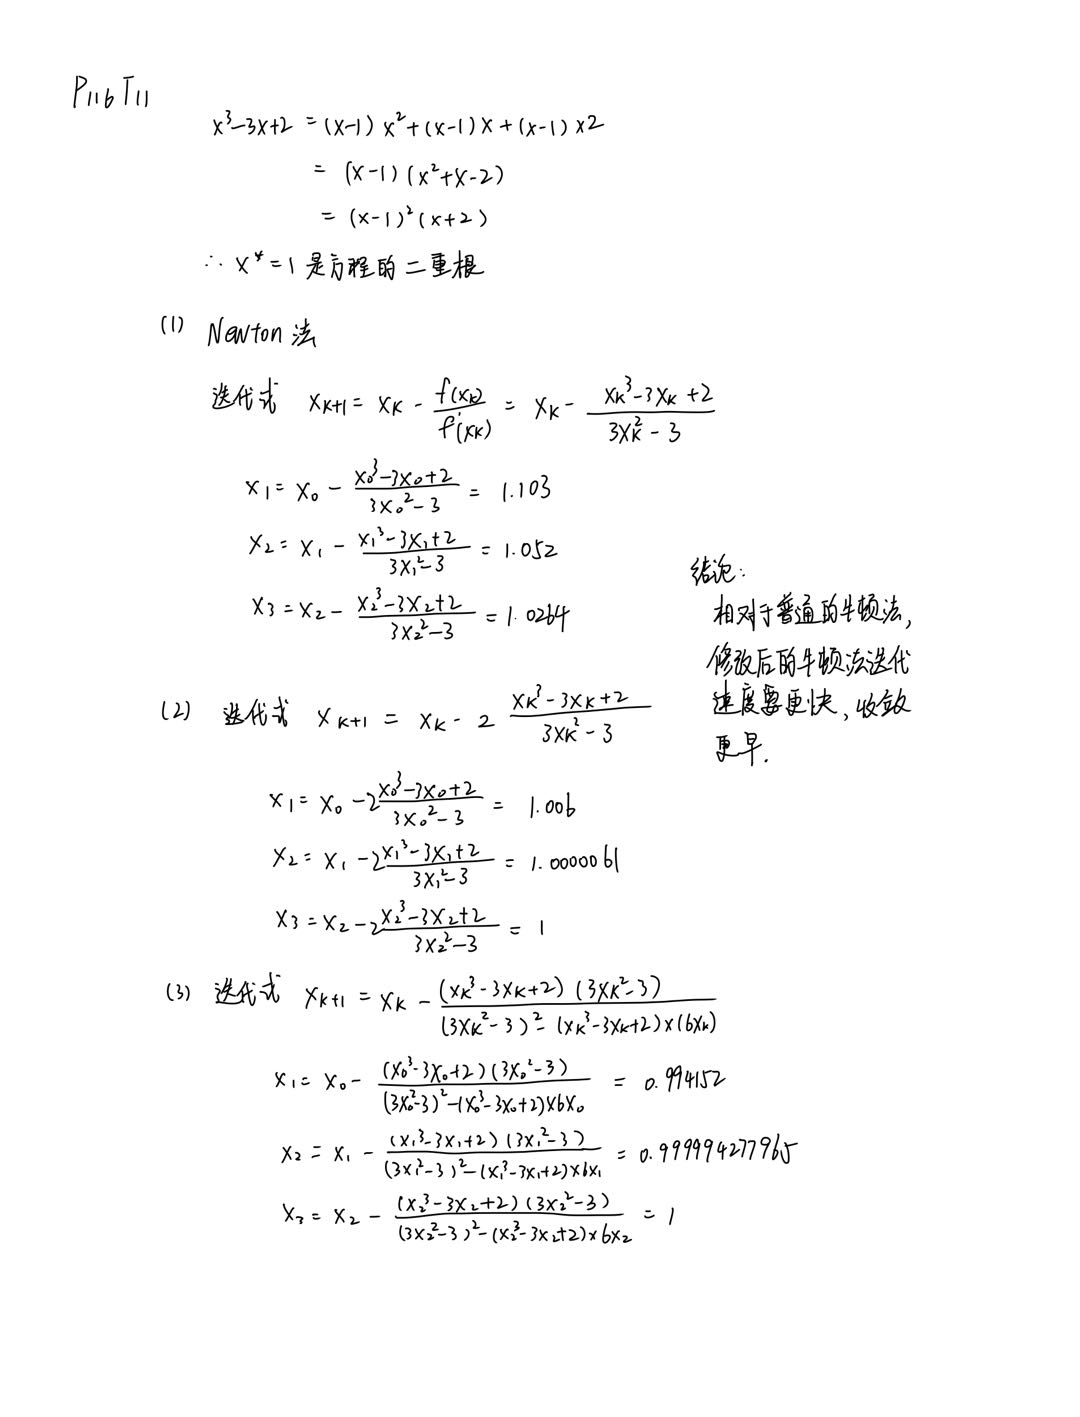 P116 T11
x³-3x+2 = (x-1) x² + (x-1) x + (x-1) x2
= (x-1) (x²+x-2)
= (x-1)² (x+2)
∴ x* = 1 是方程的二重根
(1) Newton 法
迭代式 xₖ₊₁ = xₖ - f(xₖ)/f'(xₖ) = xₖ - (xₖ³-3xₖ+2)/(3xₖ²-3)
x₁ = x₀ - (x₀³-3x₀+2)/(3x₀²-3) = 1.103
x₂ = x₁ - (x₁³-3x₁+2)/(3x₁²-3) = 1.052
x₃ = x₂ - (x₂³-3x₂+2)/(3x₂²-3) = 1.0264
结论:
相对于普通的牛顿法,
修改后的牛顿法迭代
速度要更快, 收敛
更早.
(2) 迭代式 xₖ₊₁ = xₖ - 2 (xₖ³-3xₖ+2)/(3xₖ²-3)
x₁ = x₀ - 2 (x₀³-3x₀+2)/(3x₀²-3) = 1.006
x₂ = x₁ - 2 (x₁³-3x₁+2)/(3x₁²-3) = 1.0000061
x₃ = x₂ - 2 (x₂³-3x₂+2)/(3x₂²-3) = 1
(3) 迭代式 xₖ₊₁ = xₖ - (xₖ³-3xₖ+2)(3xₖ²-3)/((3xₖ²-3)²-(xₖ³-3xₖ+2)×(6xₖ))
x₁ = x₀ - (x₀³-3x₀+2)(3x₀²-3)/((3x₀²-3)²-(x₀³-3x₀+2)×6x₀) = 0.994152
x₂ = x₁ - (x₁³-3x₁+2)(3x₁²-3)/((3x₁²-3)²-(x₁³-3x₁+2)×6x₁) = 0.999994277965
x₃ = x₂ - (x₂³-3x₂+2)(3x₂²-3)/((3x₂²-3)²-(x₂³-3x₂+2)×6x₂) = 1